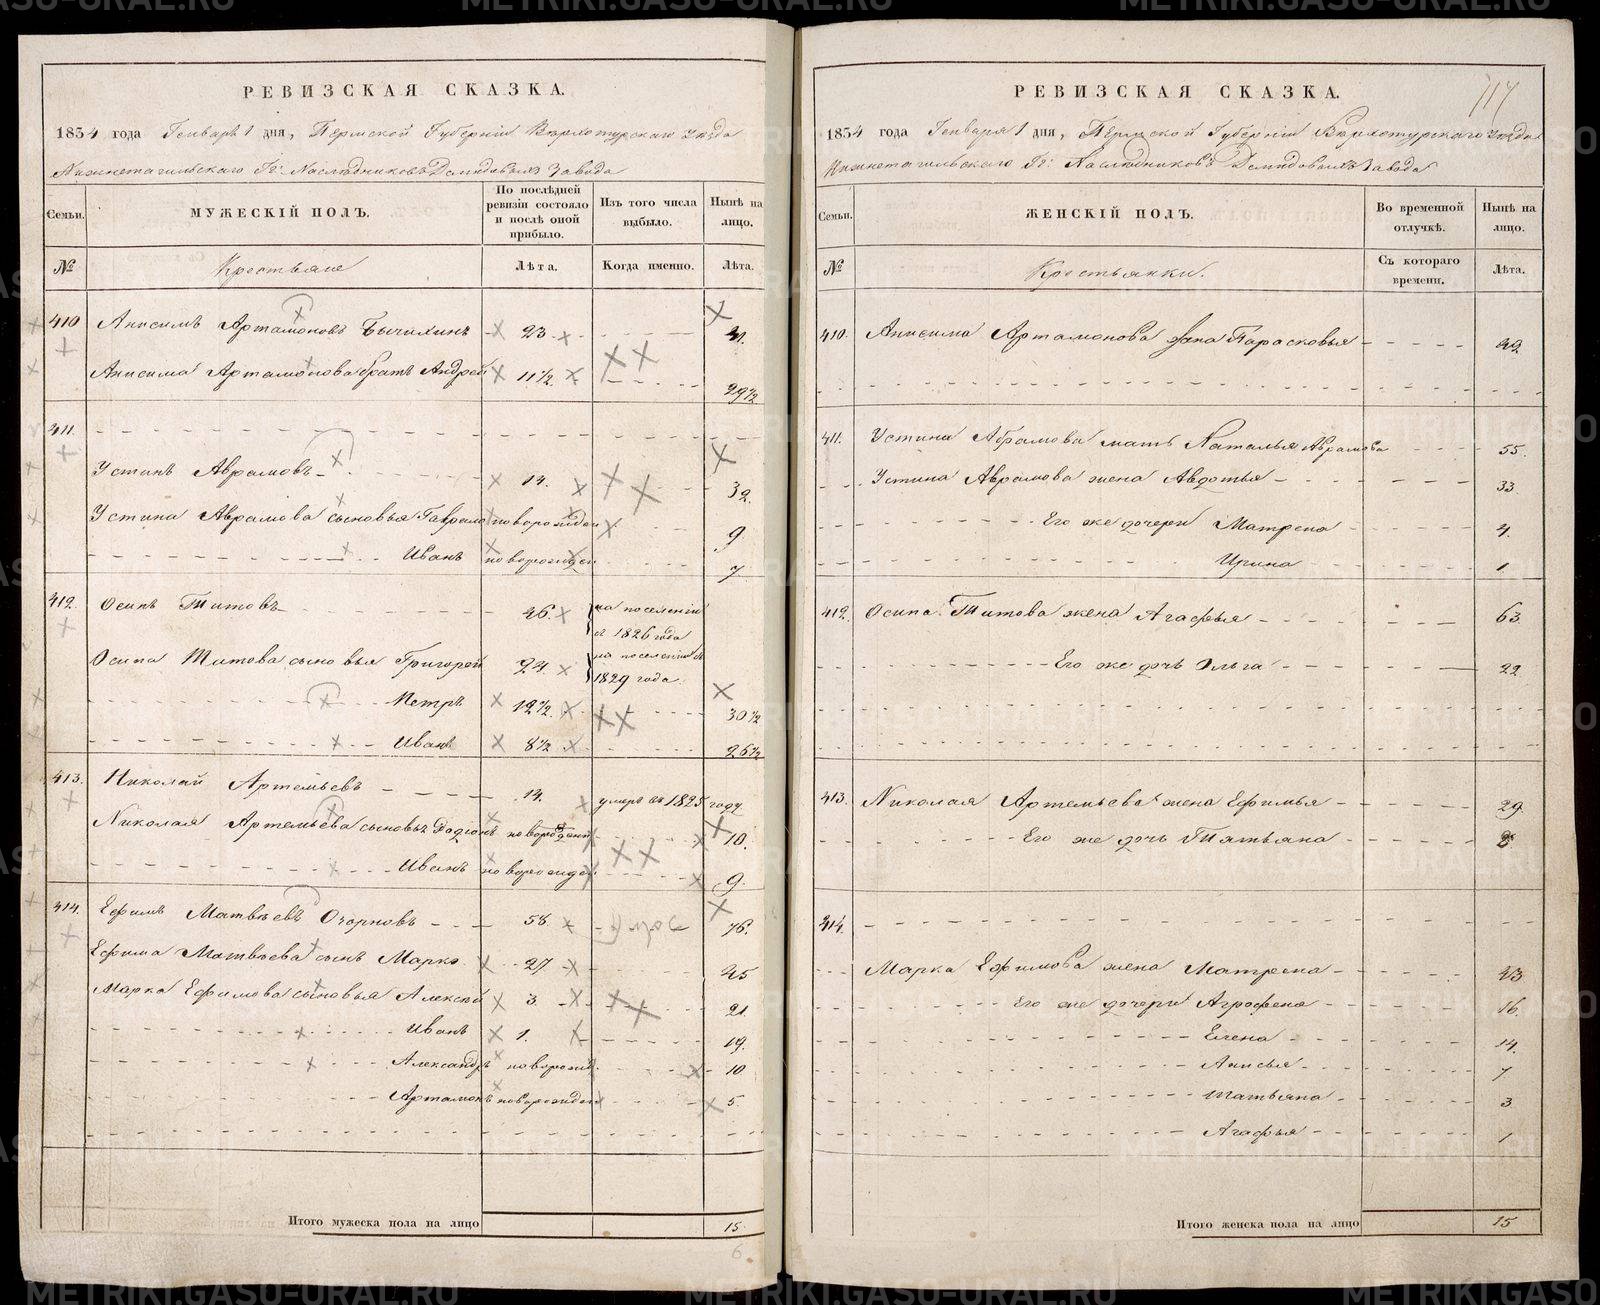 РЕВИЗСКАЯ СКАЗКА.
1834 года Генваря 1 дня, Пермской Губернiи Верхотурскаго уѣзда
Нижнетагильскаго Гг: Наслѣдниковъ Демидовыхъ Завода
Семьи.
МУЖЕСКІЙ ПОЛЪ.
По послѣдней ревизіи состояло и послѣ оной прибыло.
Изъ того числа выбыло.
Нынѣ на лицо.
№
Крестьяне
Лѣта.
Когда именно.
Лѣта.
410 Анисимъ Артамоновъ Бычихинъ 23. 41.
Анисима Артамонова братъ Андрей 11½ 29½
411.
Устинъ Аврамовъ 14. 32.
Устина Аврамова сыновья Гаврило новорожден 9
Иванъ новорожден 7
412. Осипъ Титовъ 46 на поселенiи съ 1826 года
Осипа Титова сыновья Григорей 24. на поселенiи съ 1829 года.
Петръ 12½ 30½
Иванъ 8½ 26½
413. Николай Артемьевъ 14. умеръ въ 1825 году
Николая Артемьева сыновья Родiонъ новорожден 10.
Иванъ новорожден 9.
414. Ефимъ Матвѣевъ Озорновъ 58. 76.
Ефима Матвѣева сынъ Марко 27 45
Марка Ефимова сыновья Алексѣй 3. 21.
Иванъ 1. 19.
Александръ новорожд. 10
Артамонъ новорожден 5.
Итого мужеска пола на лицо 15.
6
117
РЕВИЗСКАЯ СКАЗКА.
1834 года Генваря 1 дня, Пермской Губернiи Верхотурскаго уѣзда
Нижнетагильскаго Гг: Наслѣдниковъ Демидовыхъ Завода
Семьи.
ЖЕНСКІЙ ПОЛЪ.
Во временной отлучкѣ.
Нынѣ на лицо.
№
Крестьянки.
Съ котораго времени.
Лѣта.
410. Анисима Артамонова жена Парасковья 42
411. Устина Абрамова мать Наталья Аврамова 55
Устина Аврамова жена Авдотья 33
Его же дочери Матрена 4.
Ирина 1
412. Осипа Титова жена Агафья 63
Его же дочь Ольга 22
413. Николая Артемьева жена Ефимья 29.
Его же дочь Татьяна 8
414.
Марка Ефимова жена Матрена 43
Его же дочери Аграфена 16.
Елена 14.
Анисья 7
Татьяна 3
Агафья 1
Итого женска пола на лицо 15
METRIKI.GASO-URAL.RU